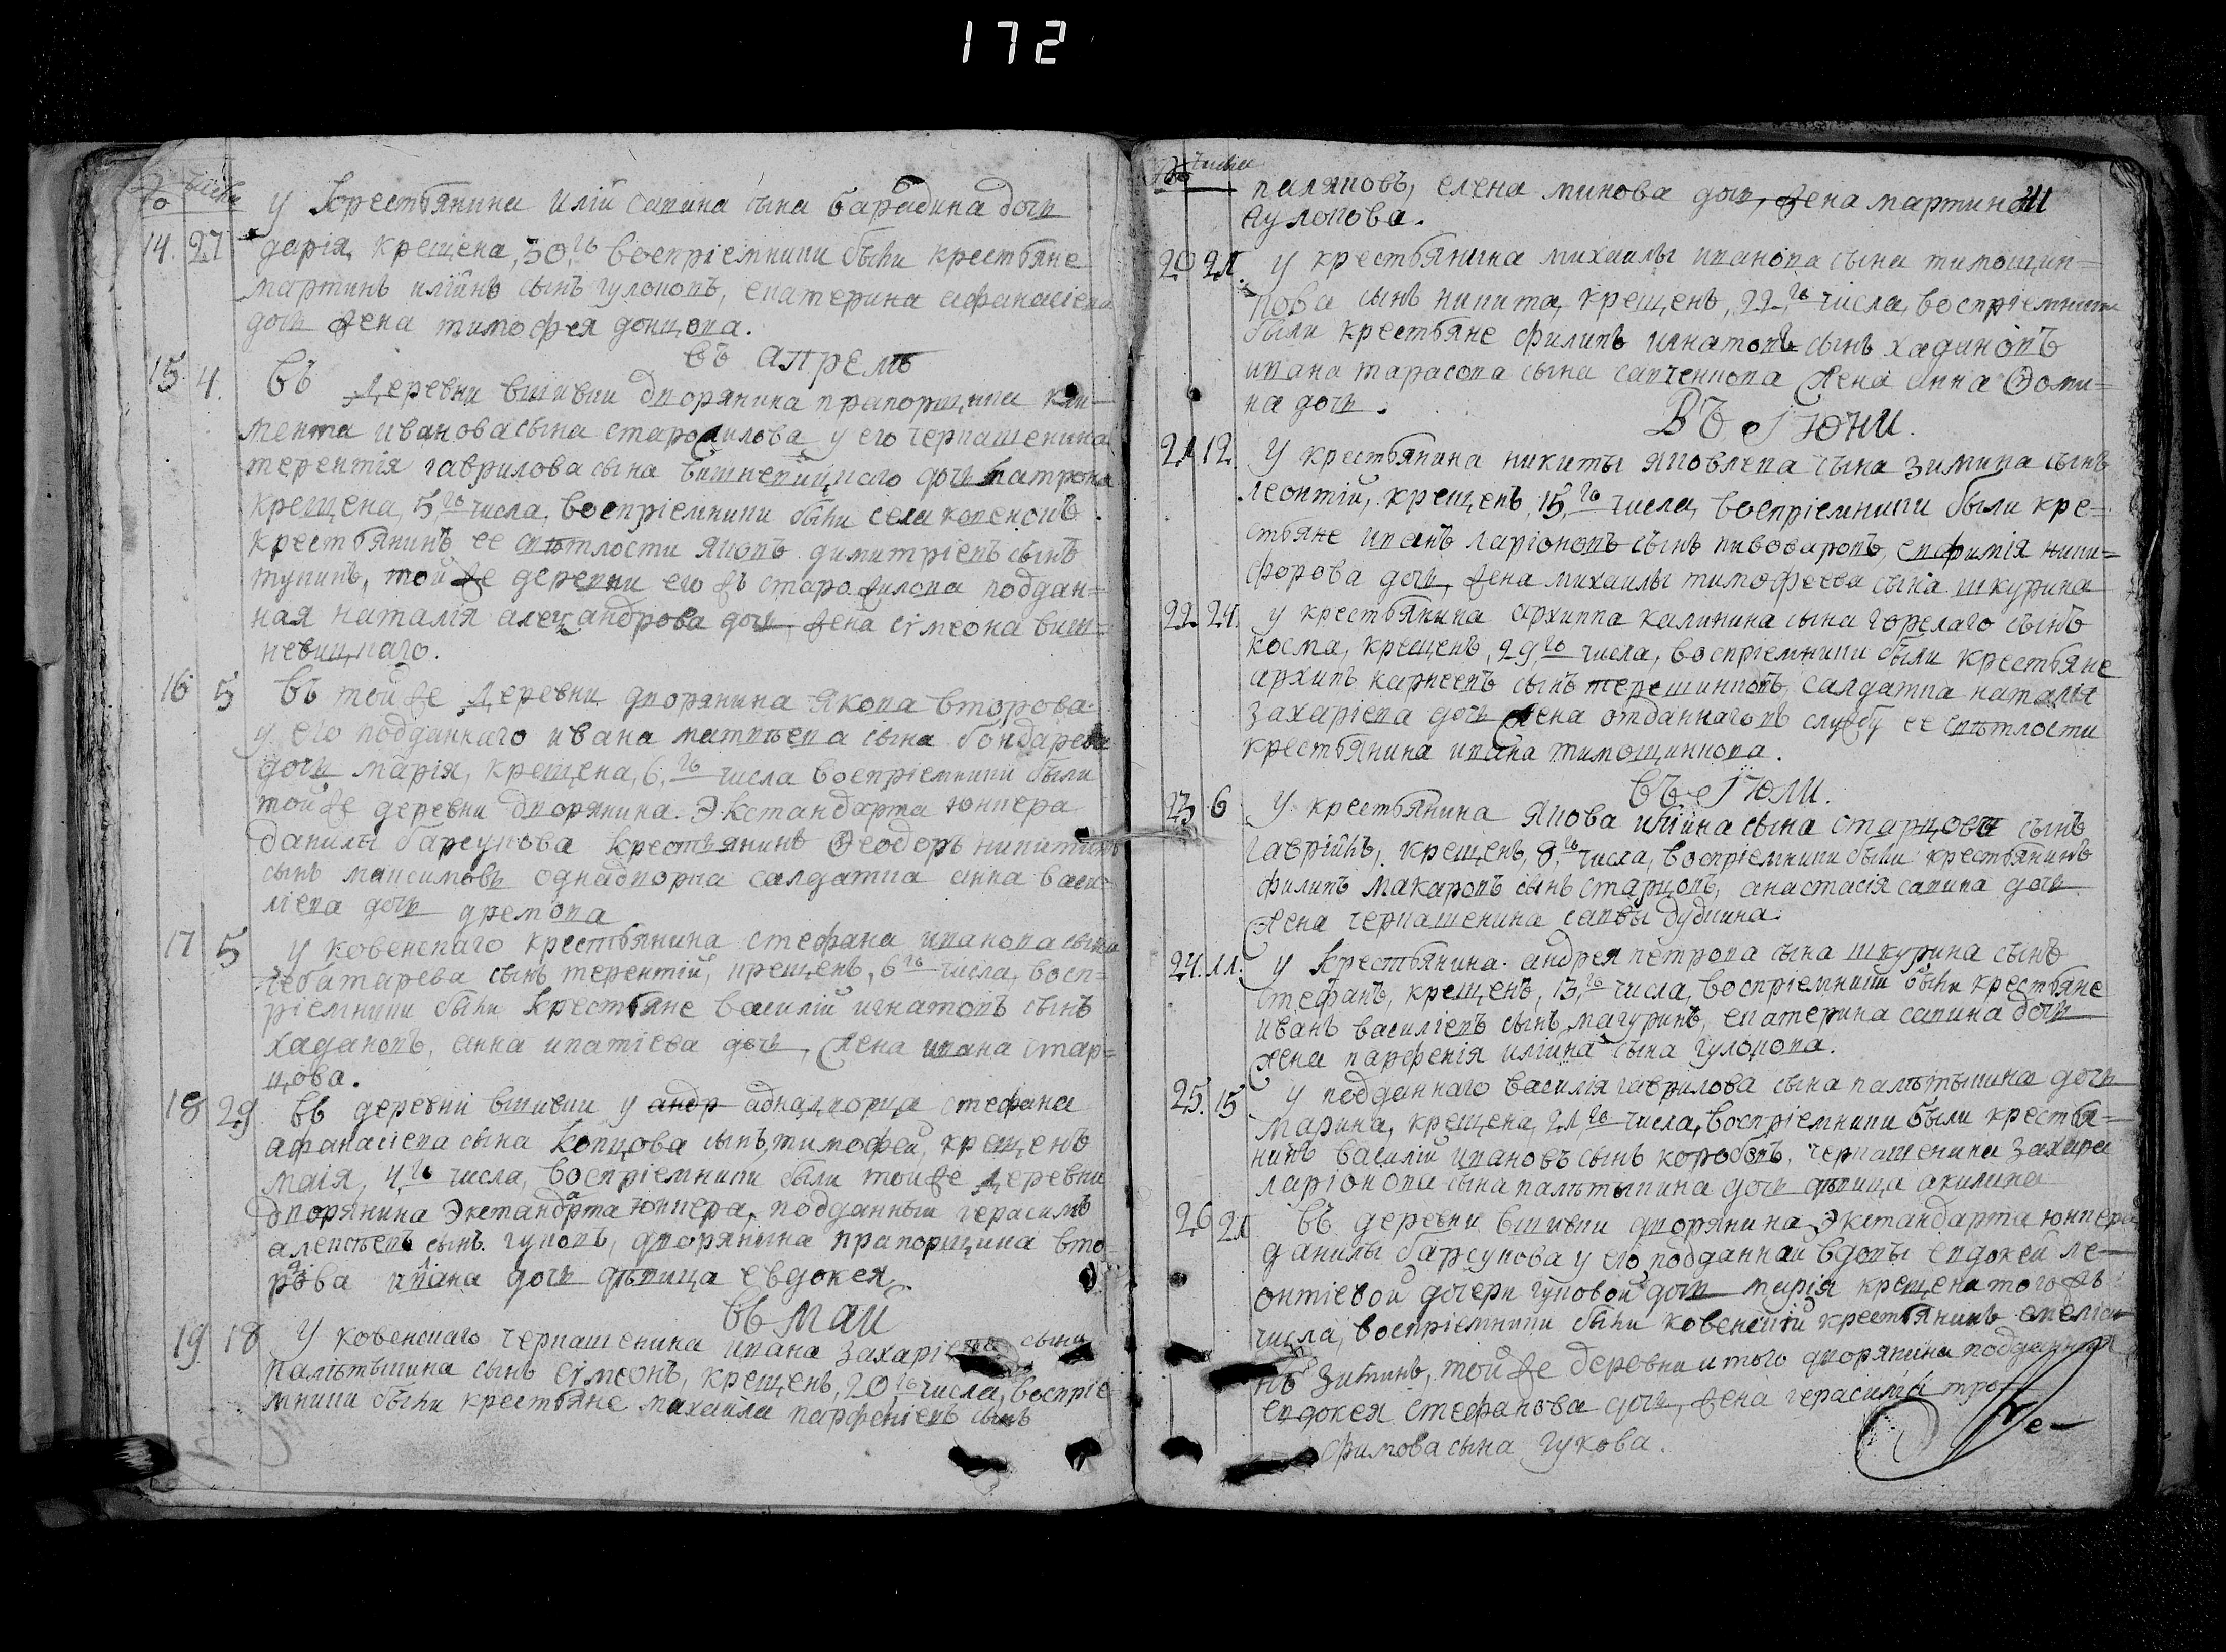 172
№ числа
У крестьянина илїи савина сына барадина дочь
14. 27 дарїя, крещена, 30,го воспрїемники были крестьяне
мартинъ илїинъ сынъ гулоковъ, екатерина афанасїева
дочь жена тимофея донцова.
въ апрелѣ
15. 4. Въ деревни вшивки дворянина прапорщика кли=
мента иванова сына старожилова у его черкашенина
терентїя гаврилова сына вишневицкаго дочь матрона
крещена, 5го числа, воспрїемники были села ковенокъ
крестьянинъ ее свѣтлости яковъ димитрїевъ сынъ
тупинъ, той же деревни его жъ старожилова поддан=
ная наталїя алеѯандрова дочь, жена сїмеона виш=
невицкаго.
16 5 Въ той же деревни дворянина якова второва
у его подданнаго ивана матвѣева сына бондарева
дочь марїя, крещена, 6,го числа воспрїемники были
той же деревни дворянина экстандарта юнкера
данилы барсукова крестьянинъ Ѳеодоръ никитинъ
сынъ максимовъ однадворка салдатка анна васи=
лїева дочь дремова
17 5 У ковенскаго крестьянина стефана иванова сына
чеботарева сынъ терентїй, крещенъ, 6го числа, восп=
рїемники были крестьяне василїй игнатовъ сынъ
хадановъ, анна ипатїева дочь, жена ивана стар=
цова.
18 29 Въ деревни вшивки у андр аднадворца стефана
афанасїева сына копцова сынъ тимофей, крещенъ
маїя, 4,го числа, воспрїемники были той же деревни
дворянина экстандарта юнкера, подданный герасимъ
алексѣевъ сынъ гуковъ, дворянина прапорщика вто=
рова ивана дочь дѣвица евдокея.
въ маи
19 18 У ковенскаго черкашенина ивана захарїева сына
палѣтыкина сынъ сїмеонъ, крещенъ, 20го числа, воспрїе
мники были крестьяне михайла парфенїевъ сынъ
№ числа
паляковъ, елена минова дочь, жена мартина
гулокова.
20 21. У крестьянина михаилы иванова сына тимошин=
кова сынъ никита, крещенъ, 22,го числа, воспрїемники
были крестьяне филипъ игнатовъ сынъ хадановъ
ивана тарасова сына савченкова жена анна Ѳоми=
на дочь.
Въ Їюни.
21 12. У крестьянина никиты яковлева сына зимина сынъ
леонтїй, крещенъ, 15,го числа, воспрїемники были кре=
стьяне иванъ ларїоновъ сынъ пивоваровъ, евфимїя ники=
форова дочь, жена михаилы тимофеева сына шкурина
22. 24. У крестьянина архиппа калинина сына горелаго сынъ
косма, крещенъ, 29го числа, воспрїемники были крестьяне
архипъ карнеевъ сынъ терешинковъ, салдатка наталїя
захарїева дочь жена отданнаго въ службу ее свѣтлости
крестьянина ивана тимошинкова.
въ Їюли.
23 6 У крестьянина якова илїина сына старцова сынъ
гаврїилъ, крещенъ, 8,го числа, воспрїемники были крестьянинъ
филипъ макаровъ сынъ старцовъ, анастасїя савина дочь
жена черкашенина саввы дудкина.
24. 11. У крестьянина андрея петрова сына шкурина сынъ
стефанъ, крещенъ, 13,го числа, воспрїемники были крестьяне
иванъ василїевъ сынъ магуринъ, екатерина савина дочь
жена парфенїя илїина сына гулокова.
25. 15 У подданнаго василїя гаврилова сына палѣтыкина дочь
марина, крещена, 21,го числа, воспрїемники были крестья=
нинъ василїй ивановъ сынъ коробовъ, черкашенина захара
ларїонова сына палѣтыкина дочь дѣвица акилина
26 21 Въ деревни вшивки дворянина экстандарта юнкера
данилы барсукова у его подданной вдовы евдокеи ле=
онтїевой дочери гуковой дочь марїя крещена того жъ
числа, воспрїемники были ковенскїй крестьянинъ
зиминъ, той же деревни и того дворянина подданная
евдокея стефанова дочь, жена герасима тро=
фимова сына гукова.